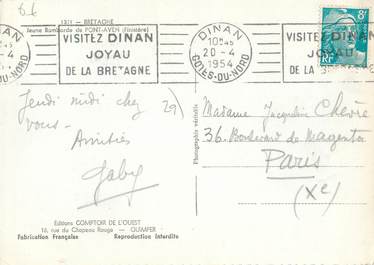 61
1311 - BRETAGNE
Jeune Bambade de PONT-AVEN (Finistère)
VISITEZ DINAN
JOYAU
DE LA BRETAGNE
DINAN
10H45
20-4
1954
COTES-DU-NORD
VISITEZ DINAN
JOYAU
8F
RF
Jeudi midi chez
vous -
Amitiés
Gaby
29)
Photographie véritable
Madame Jacqueline Chèvre
36. Boulevard de Magenta
Paris
(Xe)
Editions COMPTOIR DE L'OUEST
16, rue du Chapeau Rouge - QUIMPER
Fabrication Française Reproduction Interdite